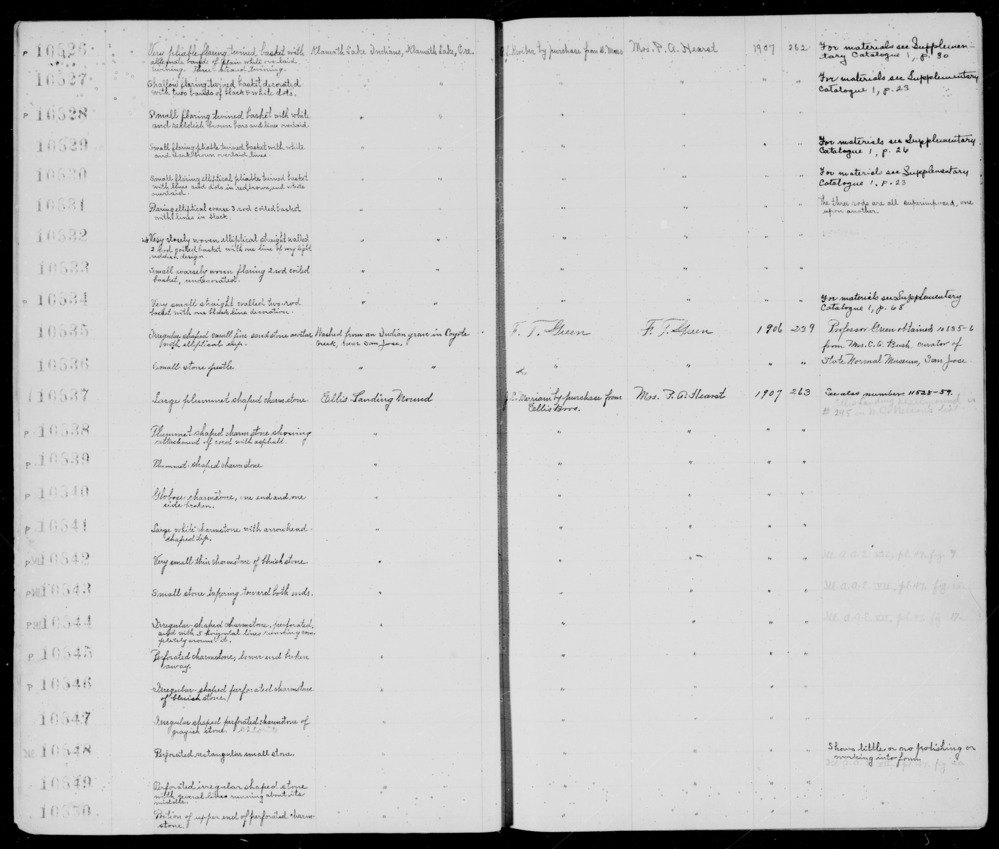 10526 Very pliable flaring twined basket with Klamath Lake Indians, Klamath Lake, Ore. by purchase from Mrs. P. A. Hearst 1907 262 For materials see Supplemen-
alternate bands of plain white overlaid tary Catalogue 1, p. 30
twining. Three-strand twining.
10527 Shallow flaring twined basket decorated " " " " " " For materials see Supplementary
with two bands of black & white dots. Catalogue 1, p. 23
P 10528 Small flaring twined basket with white " " " " " "
and reddish brown bars and lines overlaid
10529 Small flaring pliable twined basket with white " " " " " " For materials see Supplementary
and dark brown overlaid lines. Catalogue 1, p. 26
10530 Small flaring elliptical pliable twined basket " " " " " " For materials see Supplementary
with lines and dots in red brown and white Catalogue 1, p. 23
overlaid.
10531 Flaring elliptical coarse 3 rod coiled basket " " " " " " The three rods are all superimposed, one
with lines in black. upon another.
10532 Very closely woven elliptical straight walled " " " " " "
2 rod coiled basket with one line of very light
reddish design
10533 Small coarsely woven flaring 2 rod coiled " " " " " "
basket, undecorated.
P 10534 Very small straight walled two-rod " " " " " " For materials see Supplementary
basket with one black line decoration. Catalogue 1, p. 68
10535 Irregular shaped small fine sandstone mortar Washed from an Indian grave in Coyote F. T. Green F. T. Green 1906 239 Professor Green obtained 10535-6
with elliptical top. Creek, near San Jose. from Mrs. C. G. Bush, curator of
10536 Small stone pestle " " " " State Normal Museum, San Jose.
10537 Large plummet shaped charmstone Ellis Landing Mound J. C. Merriam by purchase from Mrs. P. A. Hearst 1907 263 See also numbers 11528-59.
Ellis Bros.
P 10538 Plummet shaped charmstone showing " " " " "
attachment of cord with asphalt.
P 10539 Plummet shaped charmstone " " " " "
P 10540 Globose charmstone, one end and one " " " " "
side broken.
P 10541 Large white charmstone with arrowhead- " " " " "
shaped tip.
10542 Very small thin charmstone of bluish stone " " " " "
10543 Small stone tapering toward both ends. " " " " "
10544 Irregular shaped charmstone, perforated, " " " " "
and with 5 horizontal lines running com-
pletely around it.
P 10545 Perforated charmstone, lower end broken " " " " "
away.
P 10546 Irregular shaped perforated charmstone " " " " "
of bluish stone.
10547 Irregular shaped perforated charmstone of " " " " "
grayish stone.
10548 Perforated rectangular small stone. " " " " " Shows little or no polishing or
working into form
10549 Perforated irregular shaped stone " " " " "
with several lines running about its
middle.
10550 Portion of upper end of perforated charm- " " " " "
stone.